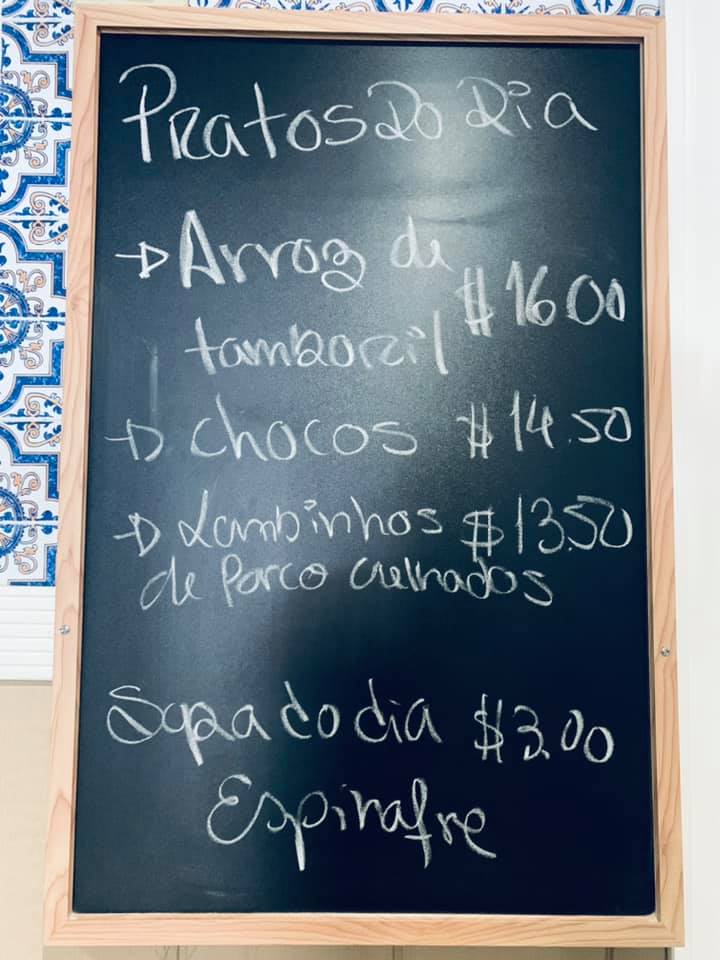 Pratos do Dia
→ Arroz de
tamboril $16.00
→ chocos $14.50
→ Lombinhos $13.50
de Porco Grelhados
Sopa do dia $3.00
Espinafre